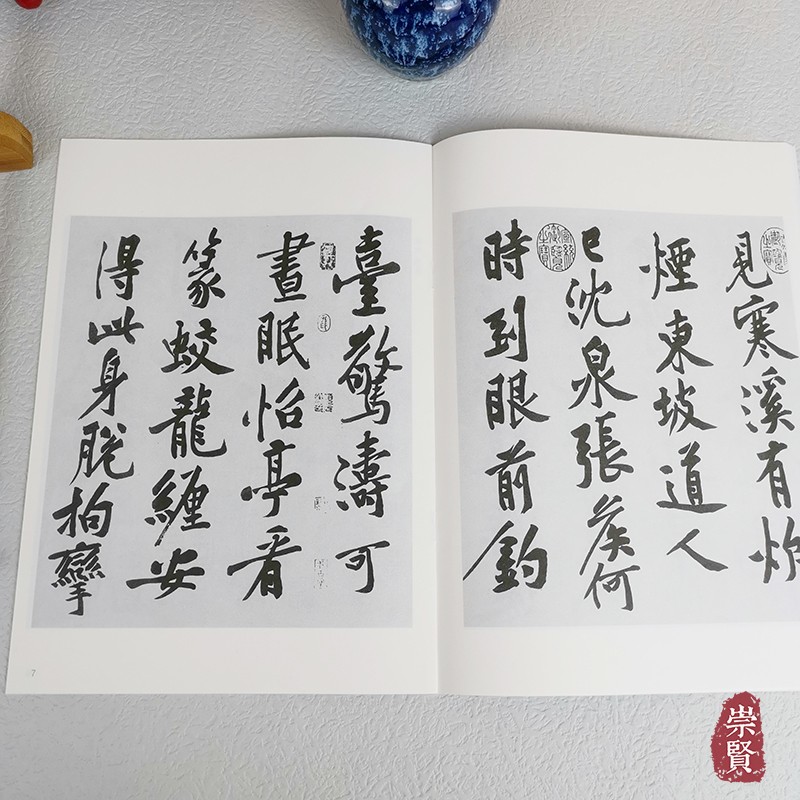 見寒溪有炊
煙東坡道人
已沈泉張侯何
時到眼前釣
臺驚濤可
晝眠怡亭看
篆蛟龍纏安
得此身脫拘攣
7
崇賢